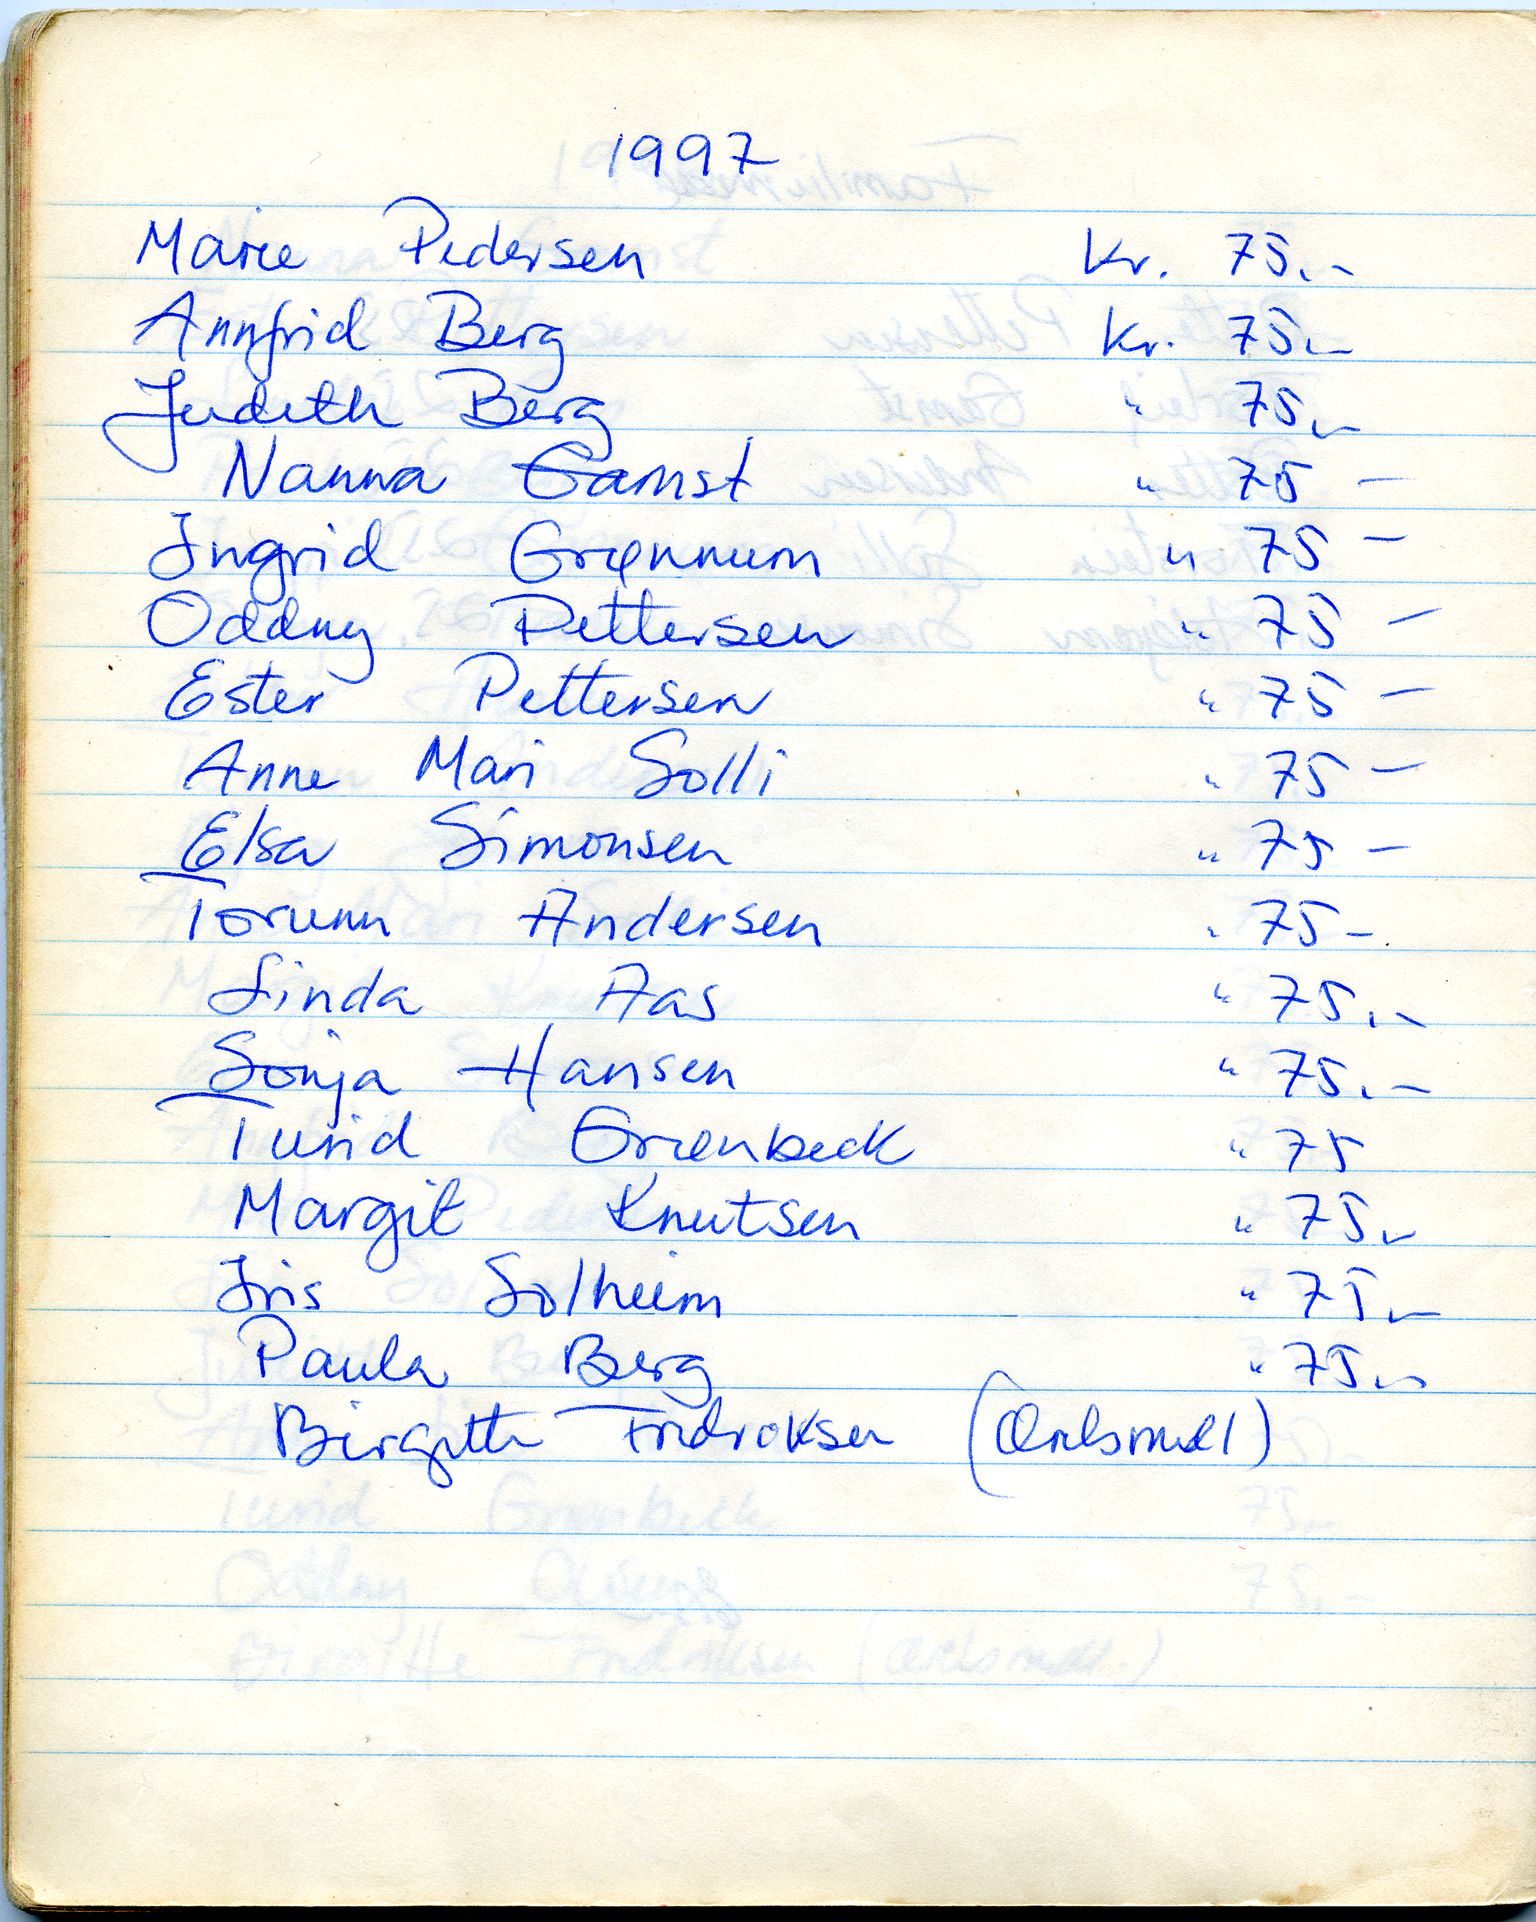 1997
Marie Pedersen Kr. 75.-
Annfrid Berg Kr. 75.-
Judith Berg " 75.-
Nanna Gamst " 75 -
Ingrid Grønnum " 75 -
Oddny Pettersen " 75 -
Ester Pettersen " 75 -
Anne Mari Solli " 75 -
Elsa Simonsen " 75 -
Torunn Andersen " 75 -
Linda Aas " 75.-
Sonja Hansen " 75.-
Turid Grønbeck " 75
Margit Knutsen " 75.-
Iris Solheim " 75.-
Paula Berg " 75.-
Birgitte Fridriksen (Æresmedl)